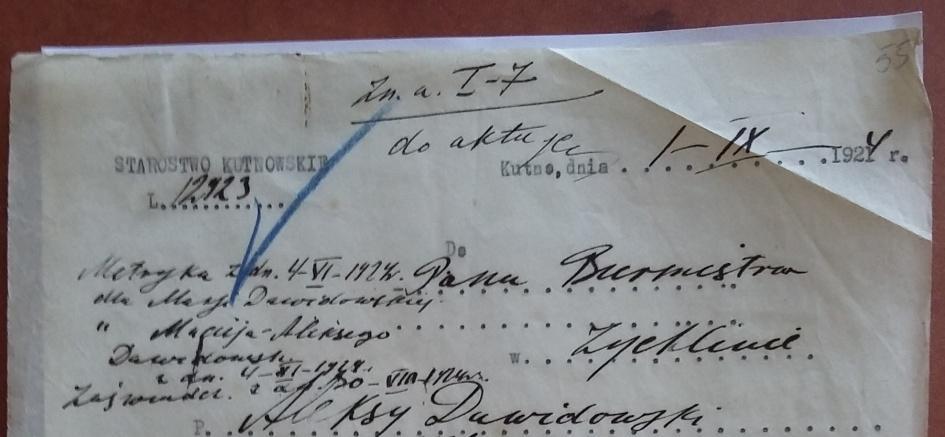 55
Zn. a. I-7
do aktu
STAROSTWO KUTNOWSKIE
Kutno, dnia 1-IX-1924 r.
L. 12923
Do
Pana Burmistrza
w Żychlinie
Metryka z dn. 4-VI-1924r.
dla Marj. Dawidowskiej
" Maciija-Aleksego
Dawidowsk
z dn. 4-VI-1924r.
Zaświadcz. z d. 30-VIII-1924r.
P. Aleksy Dawidowski